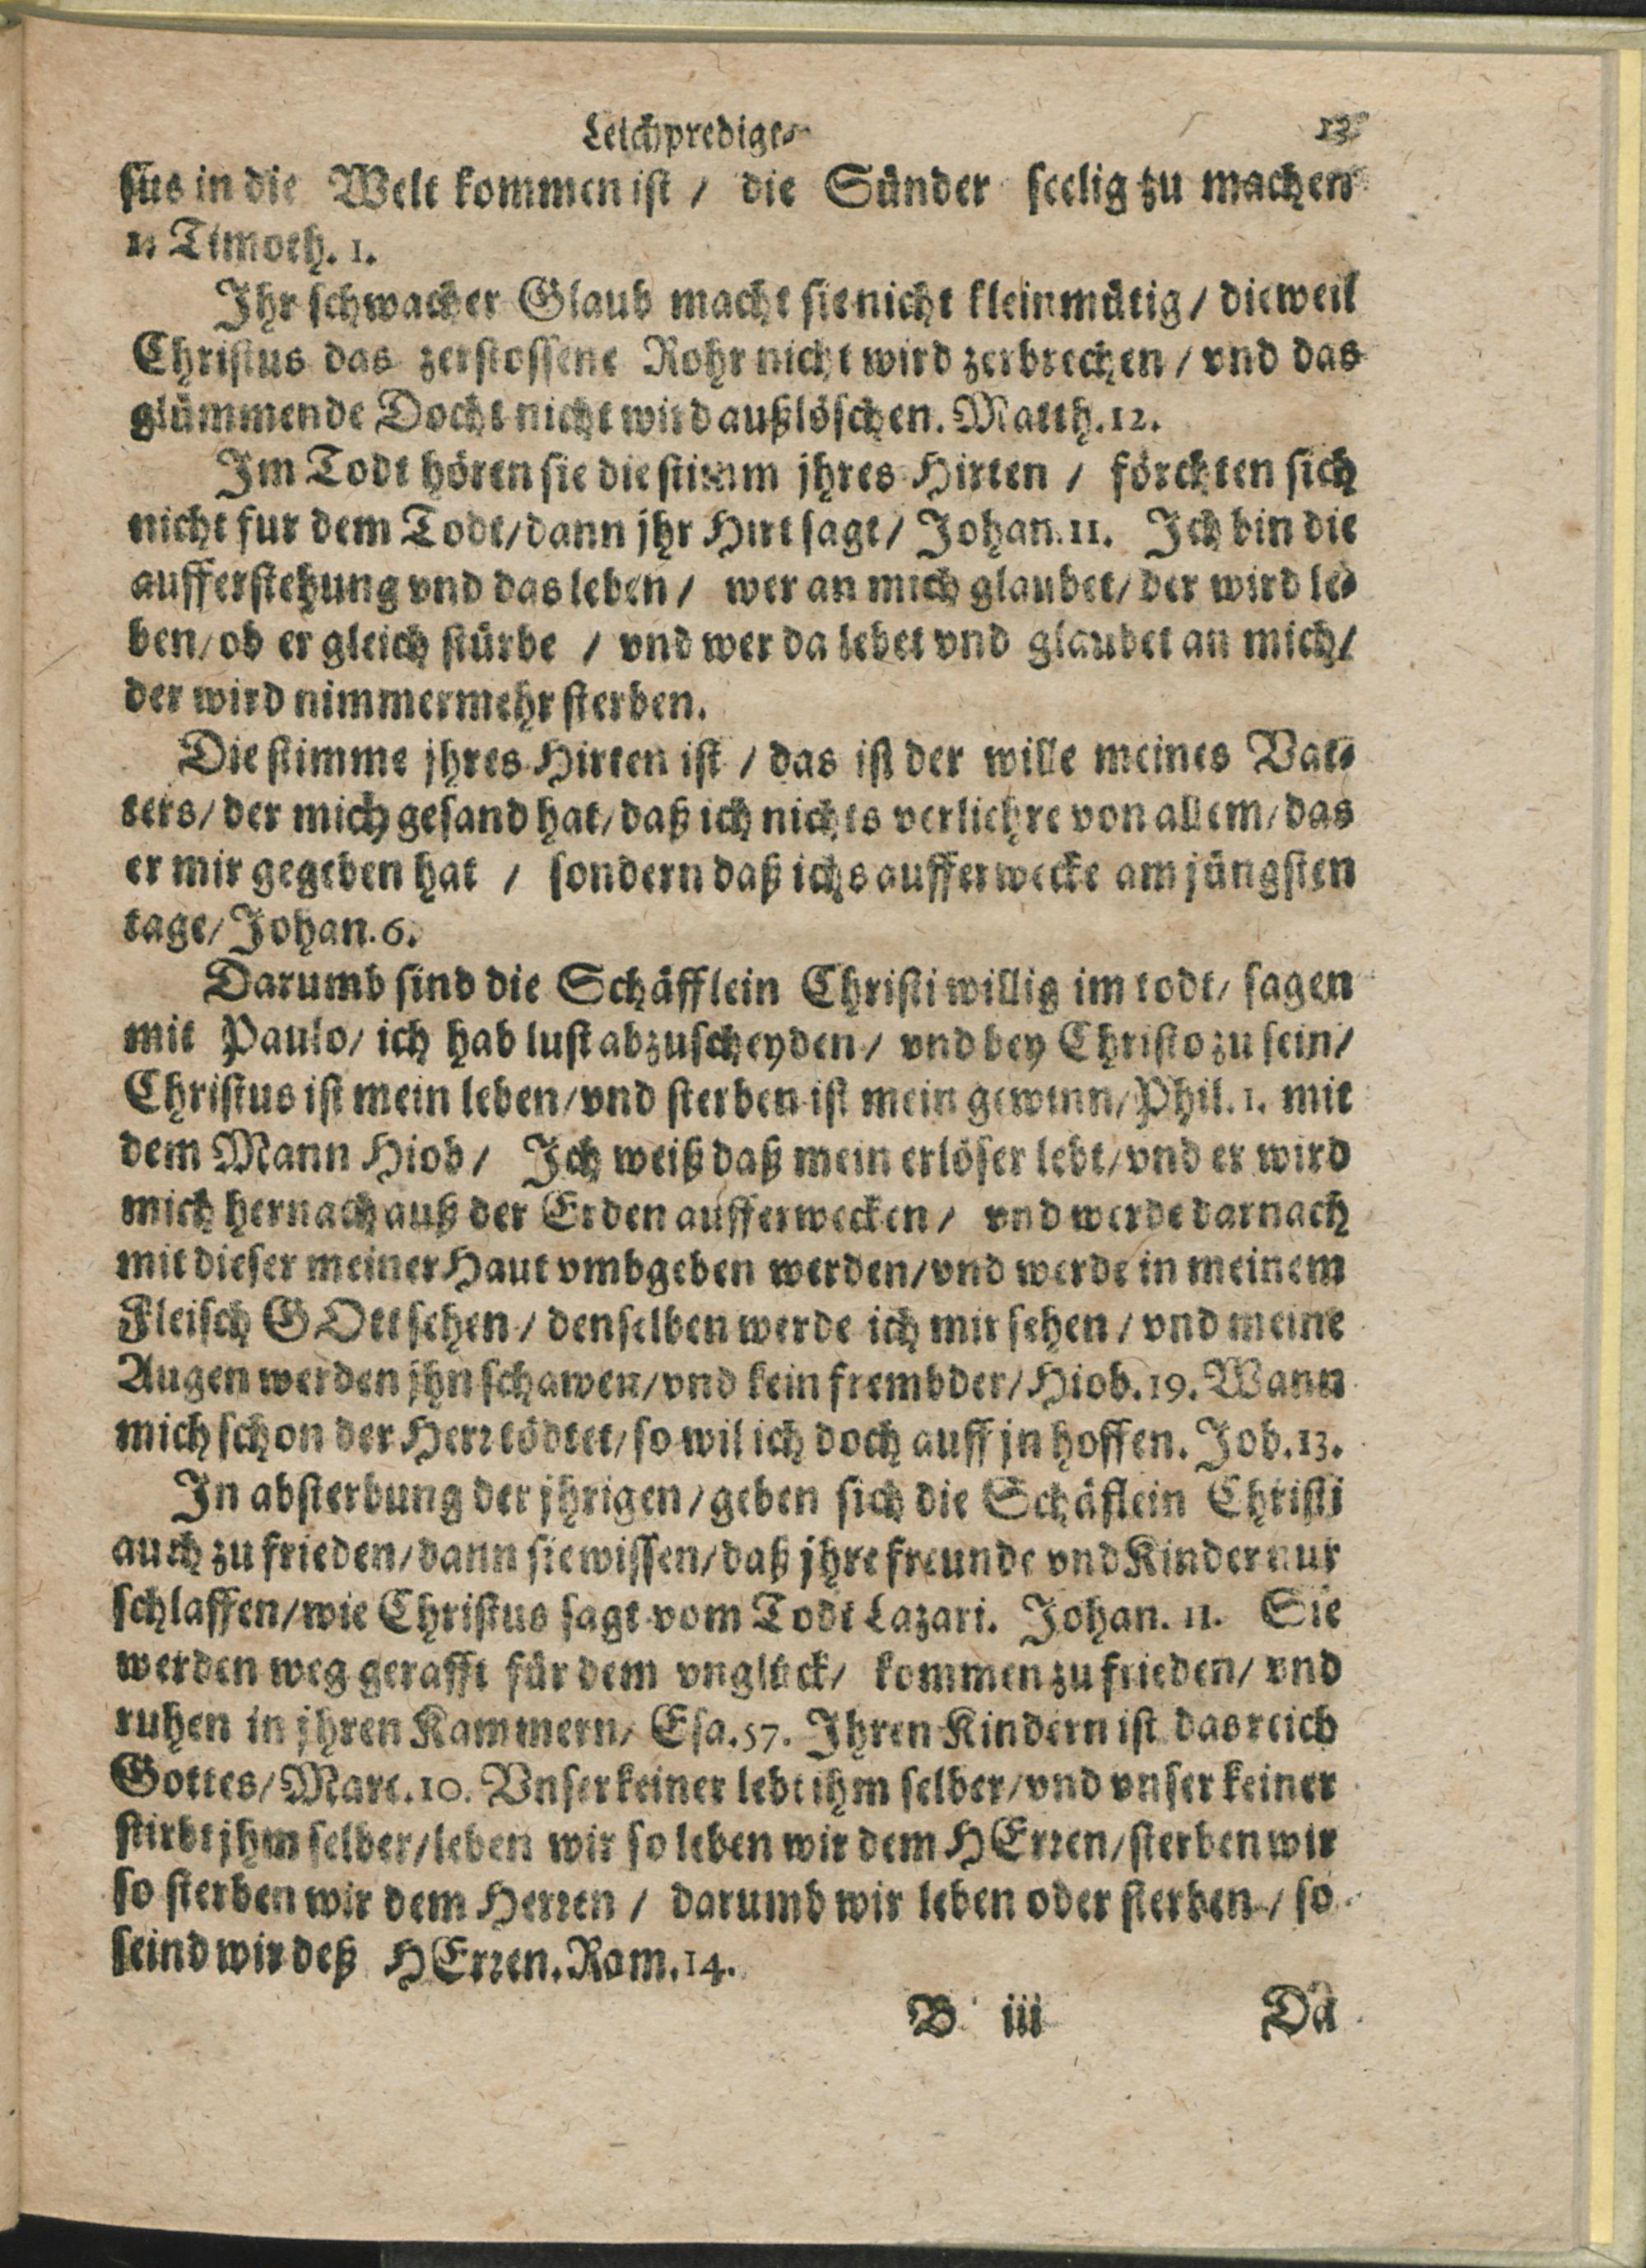 Leichpredigt. 13
sus in die Welt kommen ist / die Sünder seelig zu machen
1. Timoth. 1.
Ihr schwacher Glaub macht sie nicht kleinmütig / dieweil
Christus das zerstossene Rohr nicht wird zerbrechen / vnd das
glümmende Docht nicht wird außlöschen. Matth. 12.
Im Todt hören sie die stimm jhres Hirten / förchten sich
nicht fur dem Todt / dann jhr Hirt sagt / Johan. 11. Ich bin die
aufferstehung vnd das leben / wer an mich glaubet / der wird le-
ben / ob er gleich stürbe / vnd wer da lebet vnd glaubet an mich /
der wird nimmermehr sterben.
Die stimme jhres Hirten ist / das ist der wille meines Vat-
ters / der mich gesand hat / daß ich nichts verliehre von allem / das
er mir gegeben hat / sondern daß ichs aufferwecke am jüngsten
tage / Johan. 6.
Darumb sind die Schäfflein Christi willig im todt / sagen
mit Paulo / ich hab lust abzuscheyden / vnd bey Christo zu sein /
Christus ist mein leben / vnd sterben ist mein gewinn / Phil. 1. mit
dem Mann Hiob / Ich weiß daß mein erlöser lebt / vnd er wird
mich hernach auß der Erden aufferwecken / vnd werde darnach
mit dieser meiner Haut vmbgeben werden / vnd werde in meinem
Fleisch GOtt sehen / denselben werde ich mir sehen / vnd meine
Augen werden jhn schawen / vnd kein frembder / Hiob. 19. Wann
mich schon der Herr tödtet / so wil ich doch auff jn hoffen. Job. 13.
In absterbung der jhrigen / geben sich die Schäflein Christi
auch zu frieden / dann sie wissen / daß jhre freunde vnd Kinder nur
schlaffen / wie Christus sagt vom Todt Lazari. Johan. 11. Sie
werden weg gerafft für dem vnglück / kommen zu frieden / vnd
ruhen in jhren Kammern / Esa. 57. Ihren Kindern ist das reich
Gottes / Marc. 10. Vnser keiner lebt ihm selber / vnd vnser keiner
stirbt jhm selber / leben wir so leben wir dem HErren / sterben wir
so sterben wir dem Herren / darumb wir leben oder sterben / so
seind wir deß HErren. Rom. 14.
B iii Da